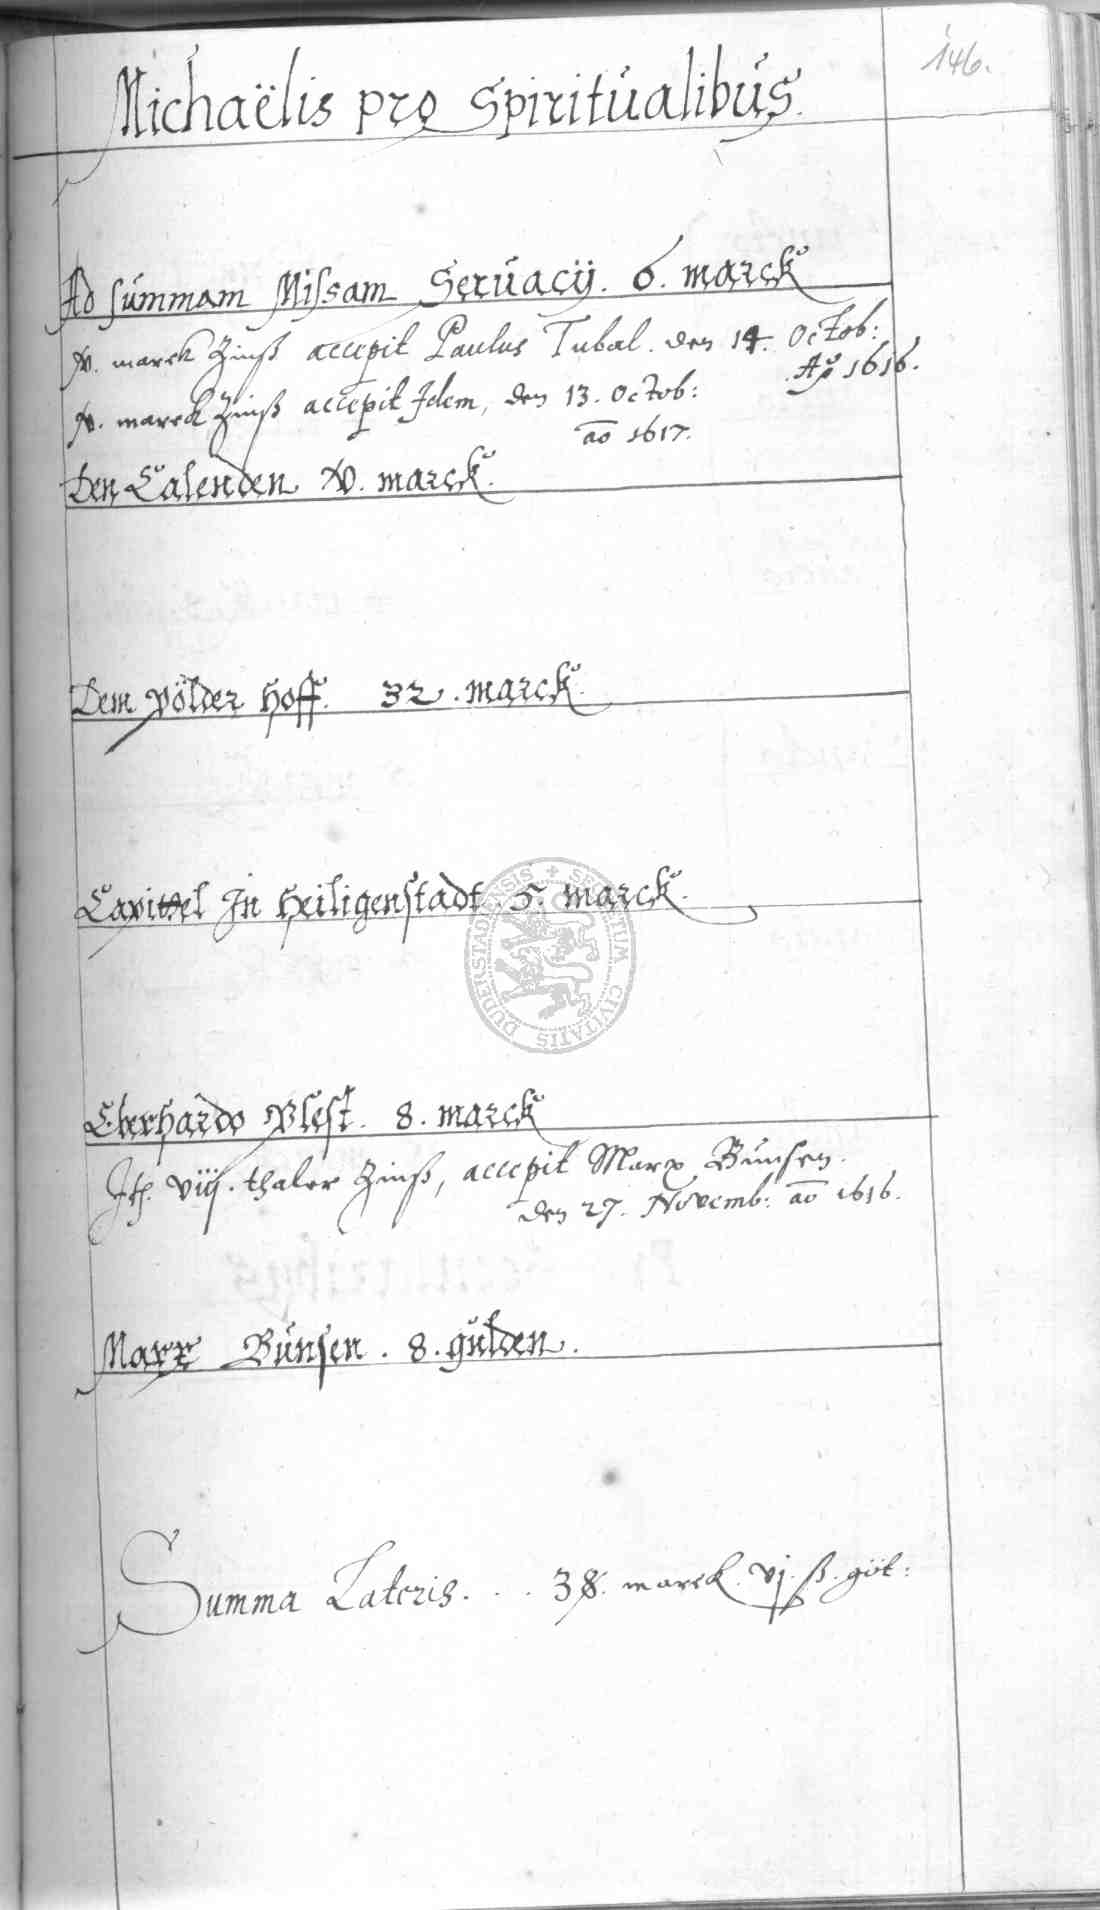 146.
Michaëlis pro Spiritualibus.
Ad summam Missam Servacij. 6. marck
marck Zinß accepit Paulus Tubal. den 14. Octob:
Ao 1616.
marck Zinß accepit Idem, den 13. Octob:
ao 1617.
Den Calenden marck.
Dem Pölder Hoff. 32. marck.
Capittel In Heiligenstadt. 5. marck.
SECRETUM CIVITATIS DUDERSTADENSIS
Eberhardo Blest. 8. marck
It. viij. thaler Zinß, accepit Marx Bünsen.
den 27. Novemb: ao 1616.
Marx Bünsen. 8. gülden.
Summa Lateris. . . 38. marck. vj. ß. göt: